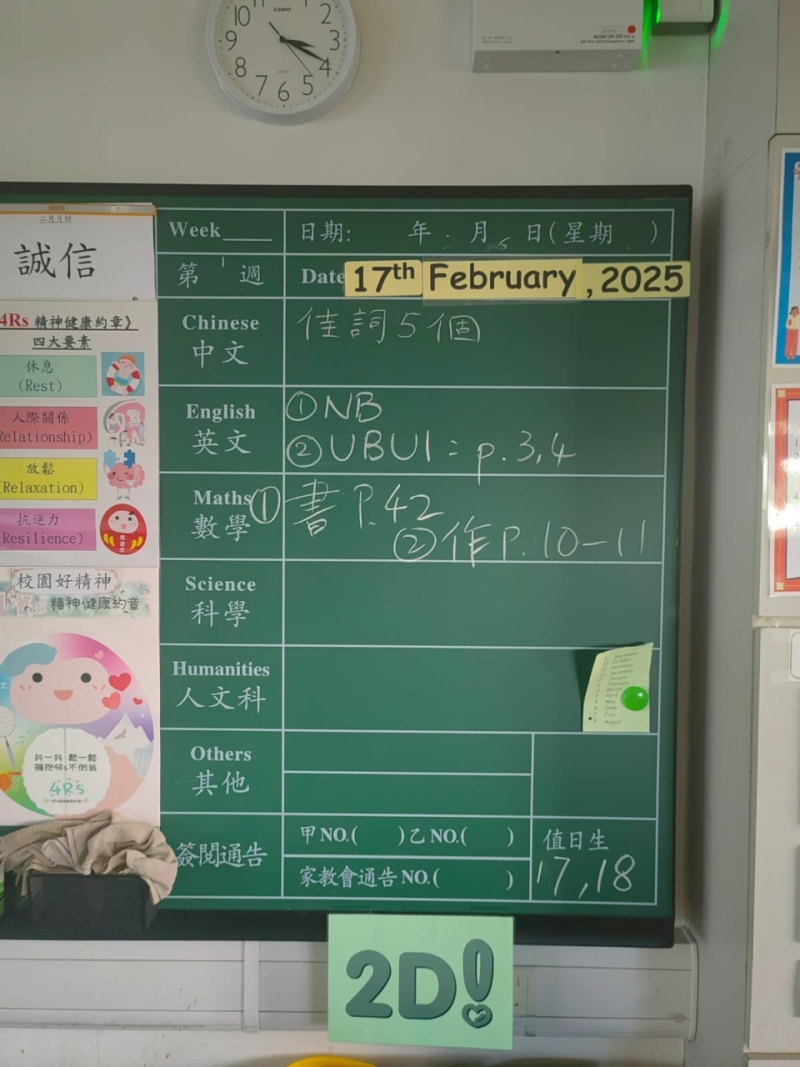 10
2
9
3
8
4
7
6
5
CASIO
二月月訓
誠信
4Rs 精神健康約章》
四大要素
休息
(Rest)
人際關係
Relationship)
放鬆
(Relaxation)
抗逆力
(Resilience)
校園好精神
4Rs 精神健康約章
抖一抖 鬆一鬆
擁抱4Rs不倒翁
4Rs
Week____ 日期: 年 月 日(星期 )
第 週 Date 17th February, 2025
Chinese
中文
佳詞5個
English
英文
①NB
②UBUI: p.3,4
Maths
數學
①書P.42
②作P.10-11
Science
科學
Humanities
人文科
October
November
December
January
February
March
April
May
June
July
August
Others
其他
簽閱通告
甲NO.( )乙NO.( )
家教會通告NO.( )
值日生
17,18
2D!